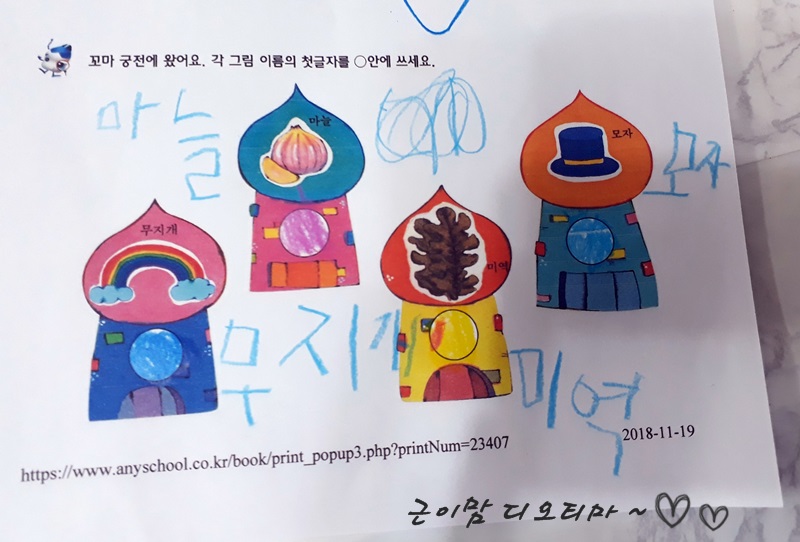 꼬마 궁전에 왔어요. 각 그림 이름의 첫글자를 ○안에 쓰세요.
마늘
마늘
모자
모자
무지개
미역
무지개
미역
2018-11-19
https://www.anyschool.co.kr/book/print_popup3.php?printNum=23407
근이맘 디오티마 ~♡♡